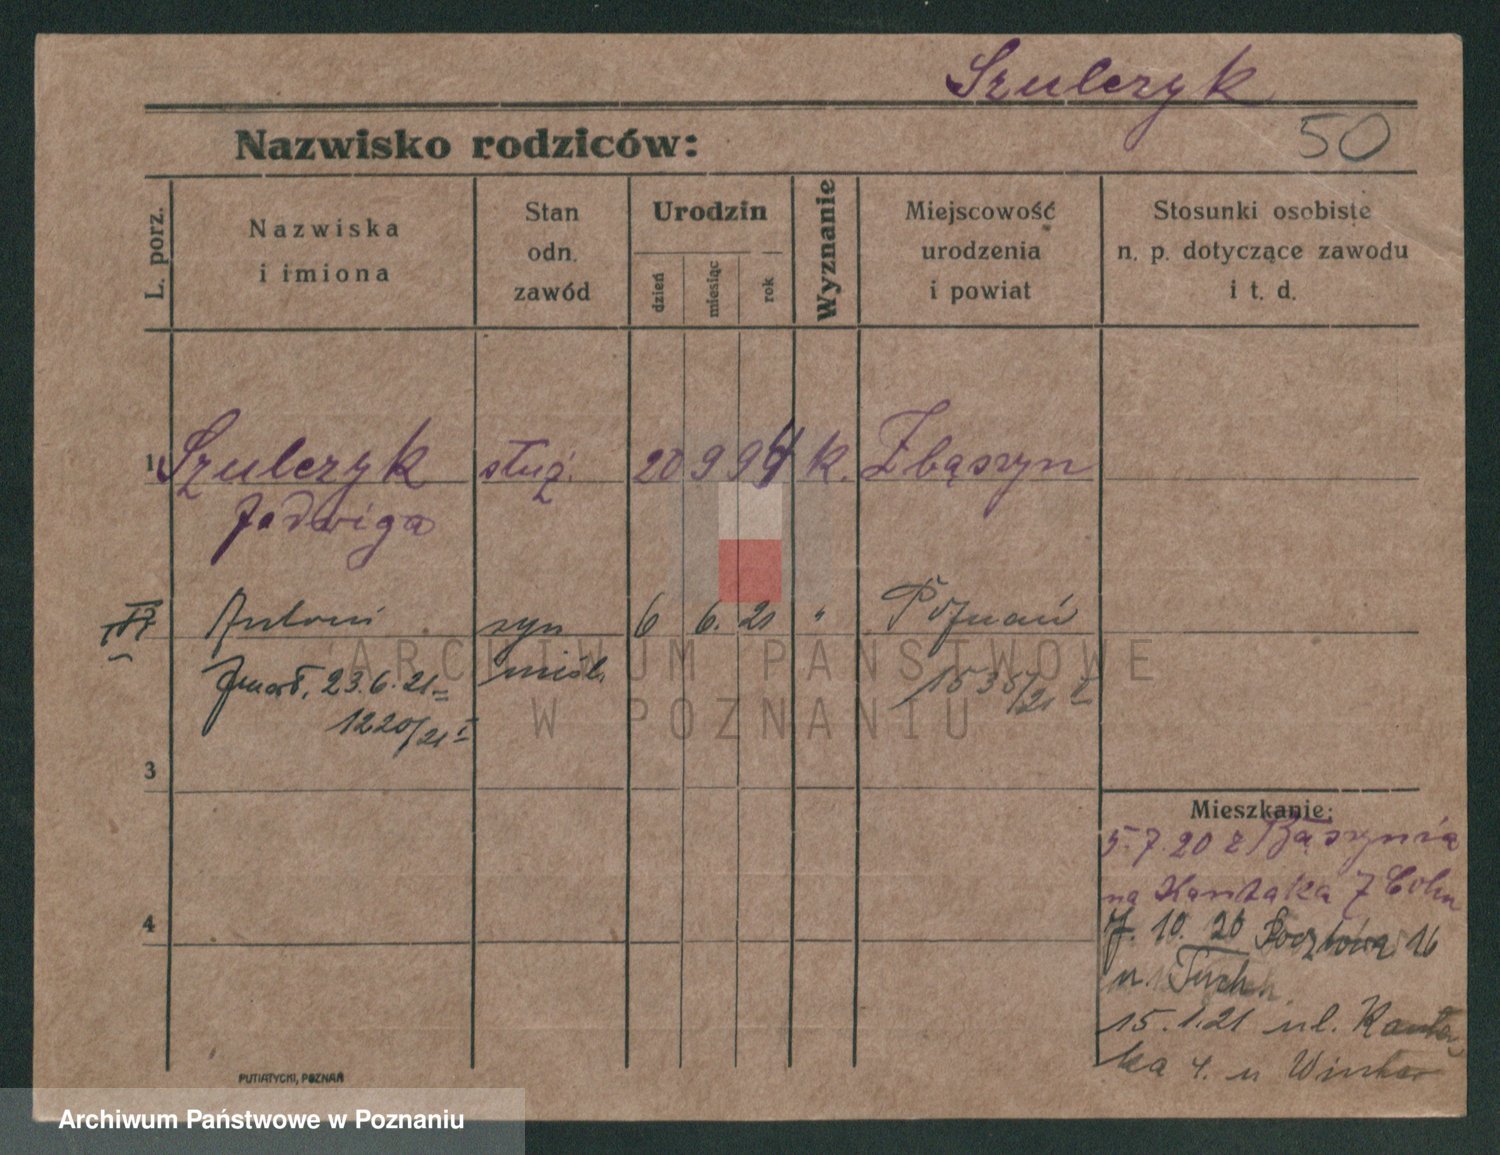 Szulczyk
Nazwisko rodziców:
50
L. porz.
Nazwiska
i imiona
Stan
odn.
zawód
Urodzin
dzień
miesiąc
rok
Wyznanie
Miejscowość
urodzenia
i powiat
Stosunki osobiste
n. p. dotyczące zawodu
i t. d.
1 Szulczyk służ. 20 9 94 k. Zbąszyn
Jadwiga
Antoni syn 6 6. 21 " Poznań
zmarł. 23.6.21 1535/21 I
1220/21 I
3
4
Mieszkanie:
5.7.20 z Zbąszynia
na Kantaka 7 Cohn
10. 20 Pocztowa 16
u.
15.1.21 ul. Kanta
ka 4. u
PUTIATYCKI, POZNAŃ
ARCHIWUM PAŃSTWOWE
W POZNANIU
Archiwum Państwowe w Poznaniu